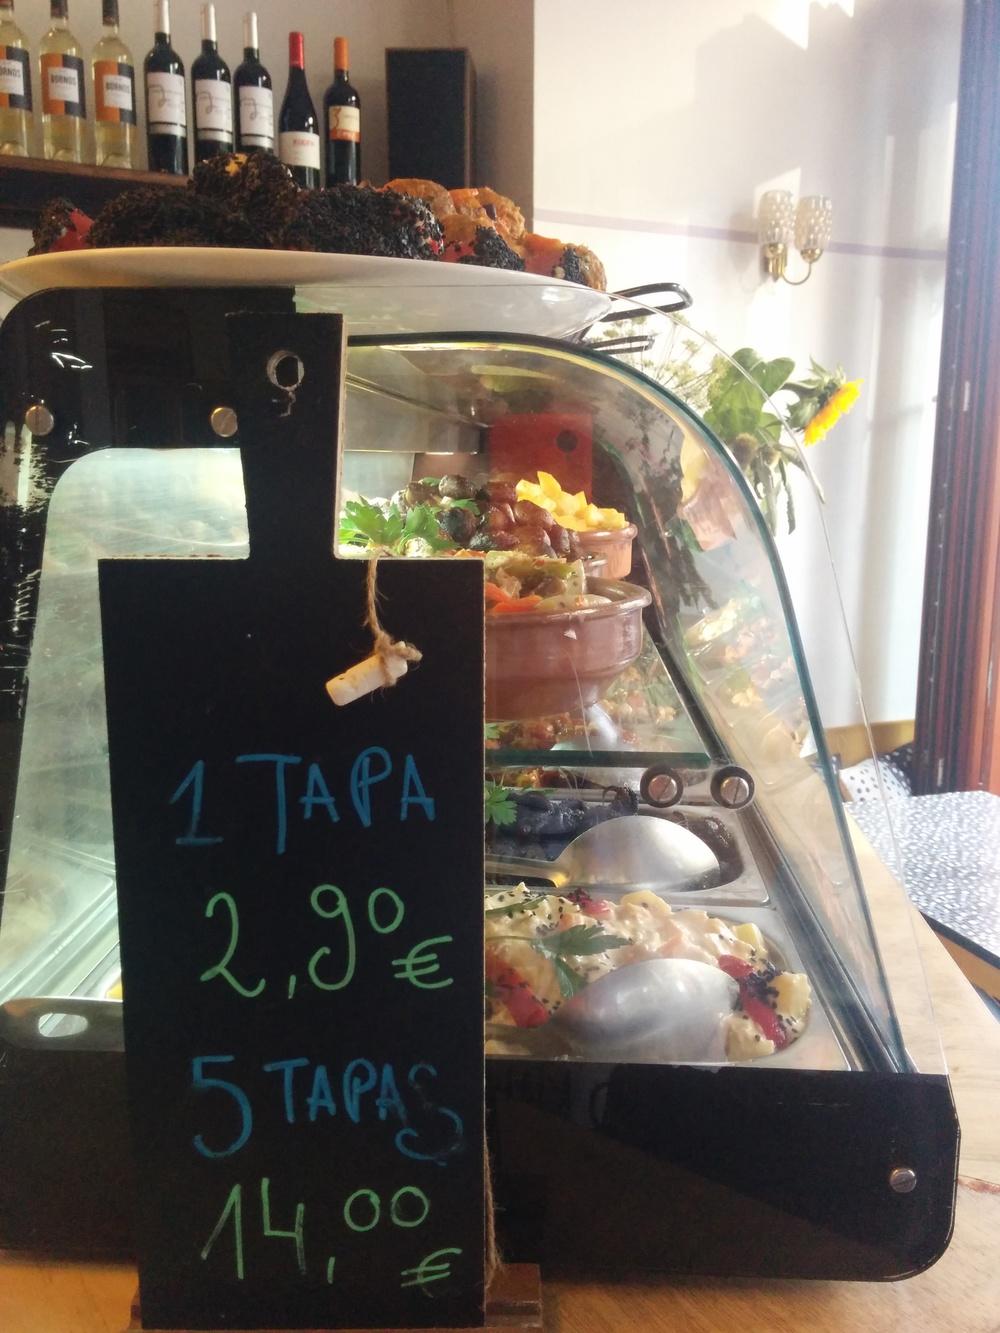 BORNOS
BORNOS
1 TAPA
2,90 €
5 TAPAS
14,00 €